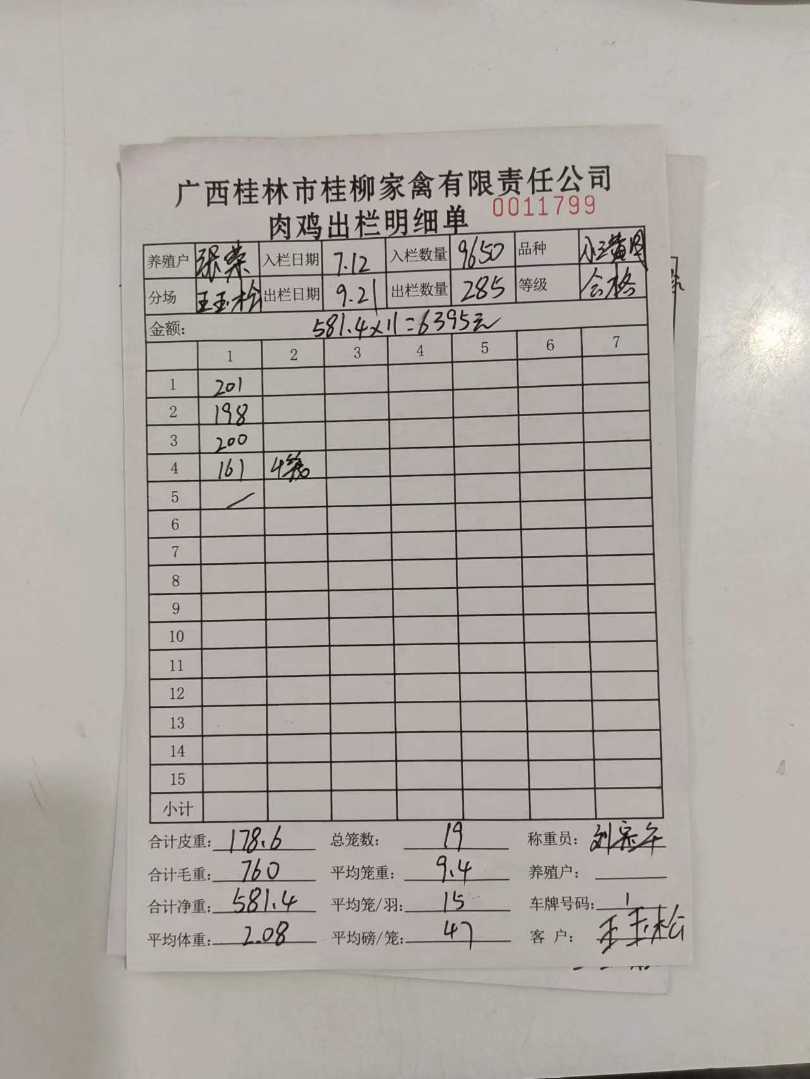 广西桂林市桂柳家禽有限责任公司
肉鸡出栏明细单 0011799
养殖户 张荣 入栏日期 7.12 入栏数量 9650 品种
分场 王玉松 出栏日期 9.21 出栏数量 285 等级 合格
金额: 581.4×11=6395元
1 2 3 4 5 6 7
1 201
2 198
3 200
4 161 4笼
5
6
7
8
9
10
11
12
13
14
15
小计
合计皮重: 178.6 总笼数: 19 称重员:
合计毛重: 760 平均笼重: 9.4 养殖户:
合计净重: 581.4 平均笼/羽: 15 车牌号码: 1
平均体重: 2.08 平均磅/笼: 47 客户: 王玉松